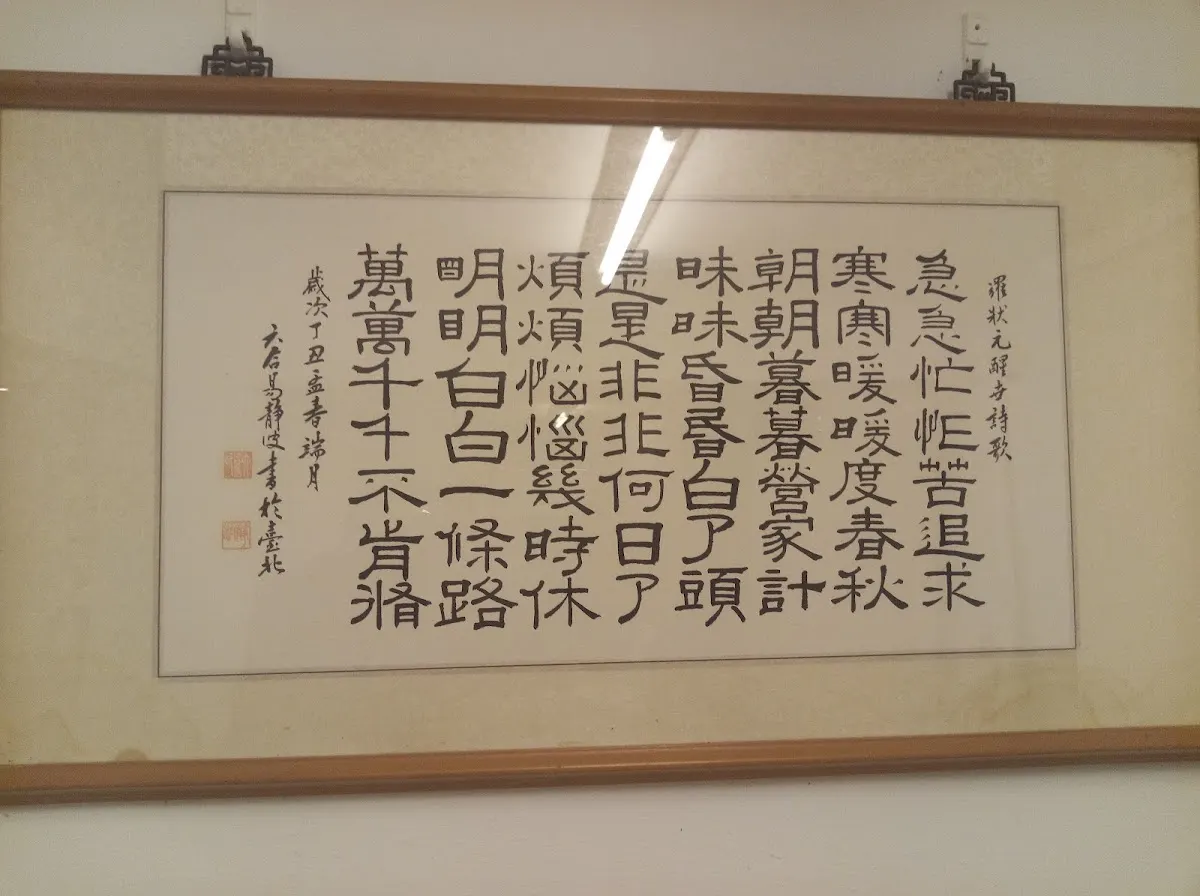 羅狀元醒世詩歌
急急忙忙苦追求
寒寒暖暖度春秋
朝朝暮暮營家計
昧昧昏昏白了頭
是是非非何日了
煩煩惱惱幾時休
明明白白一條路
萬萬千千不肯脩
歲次丁丑孟春端月
六合易靜波書於臺北